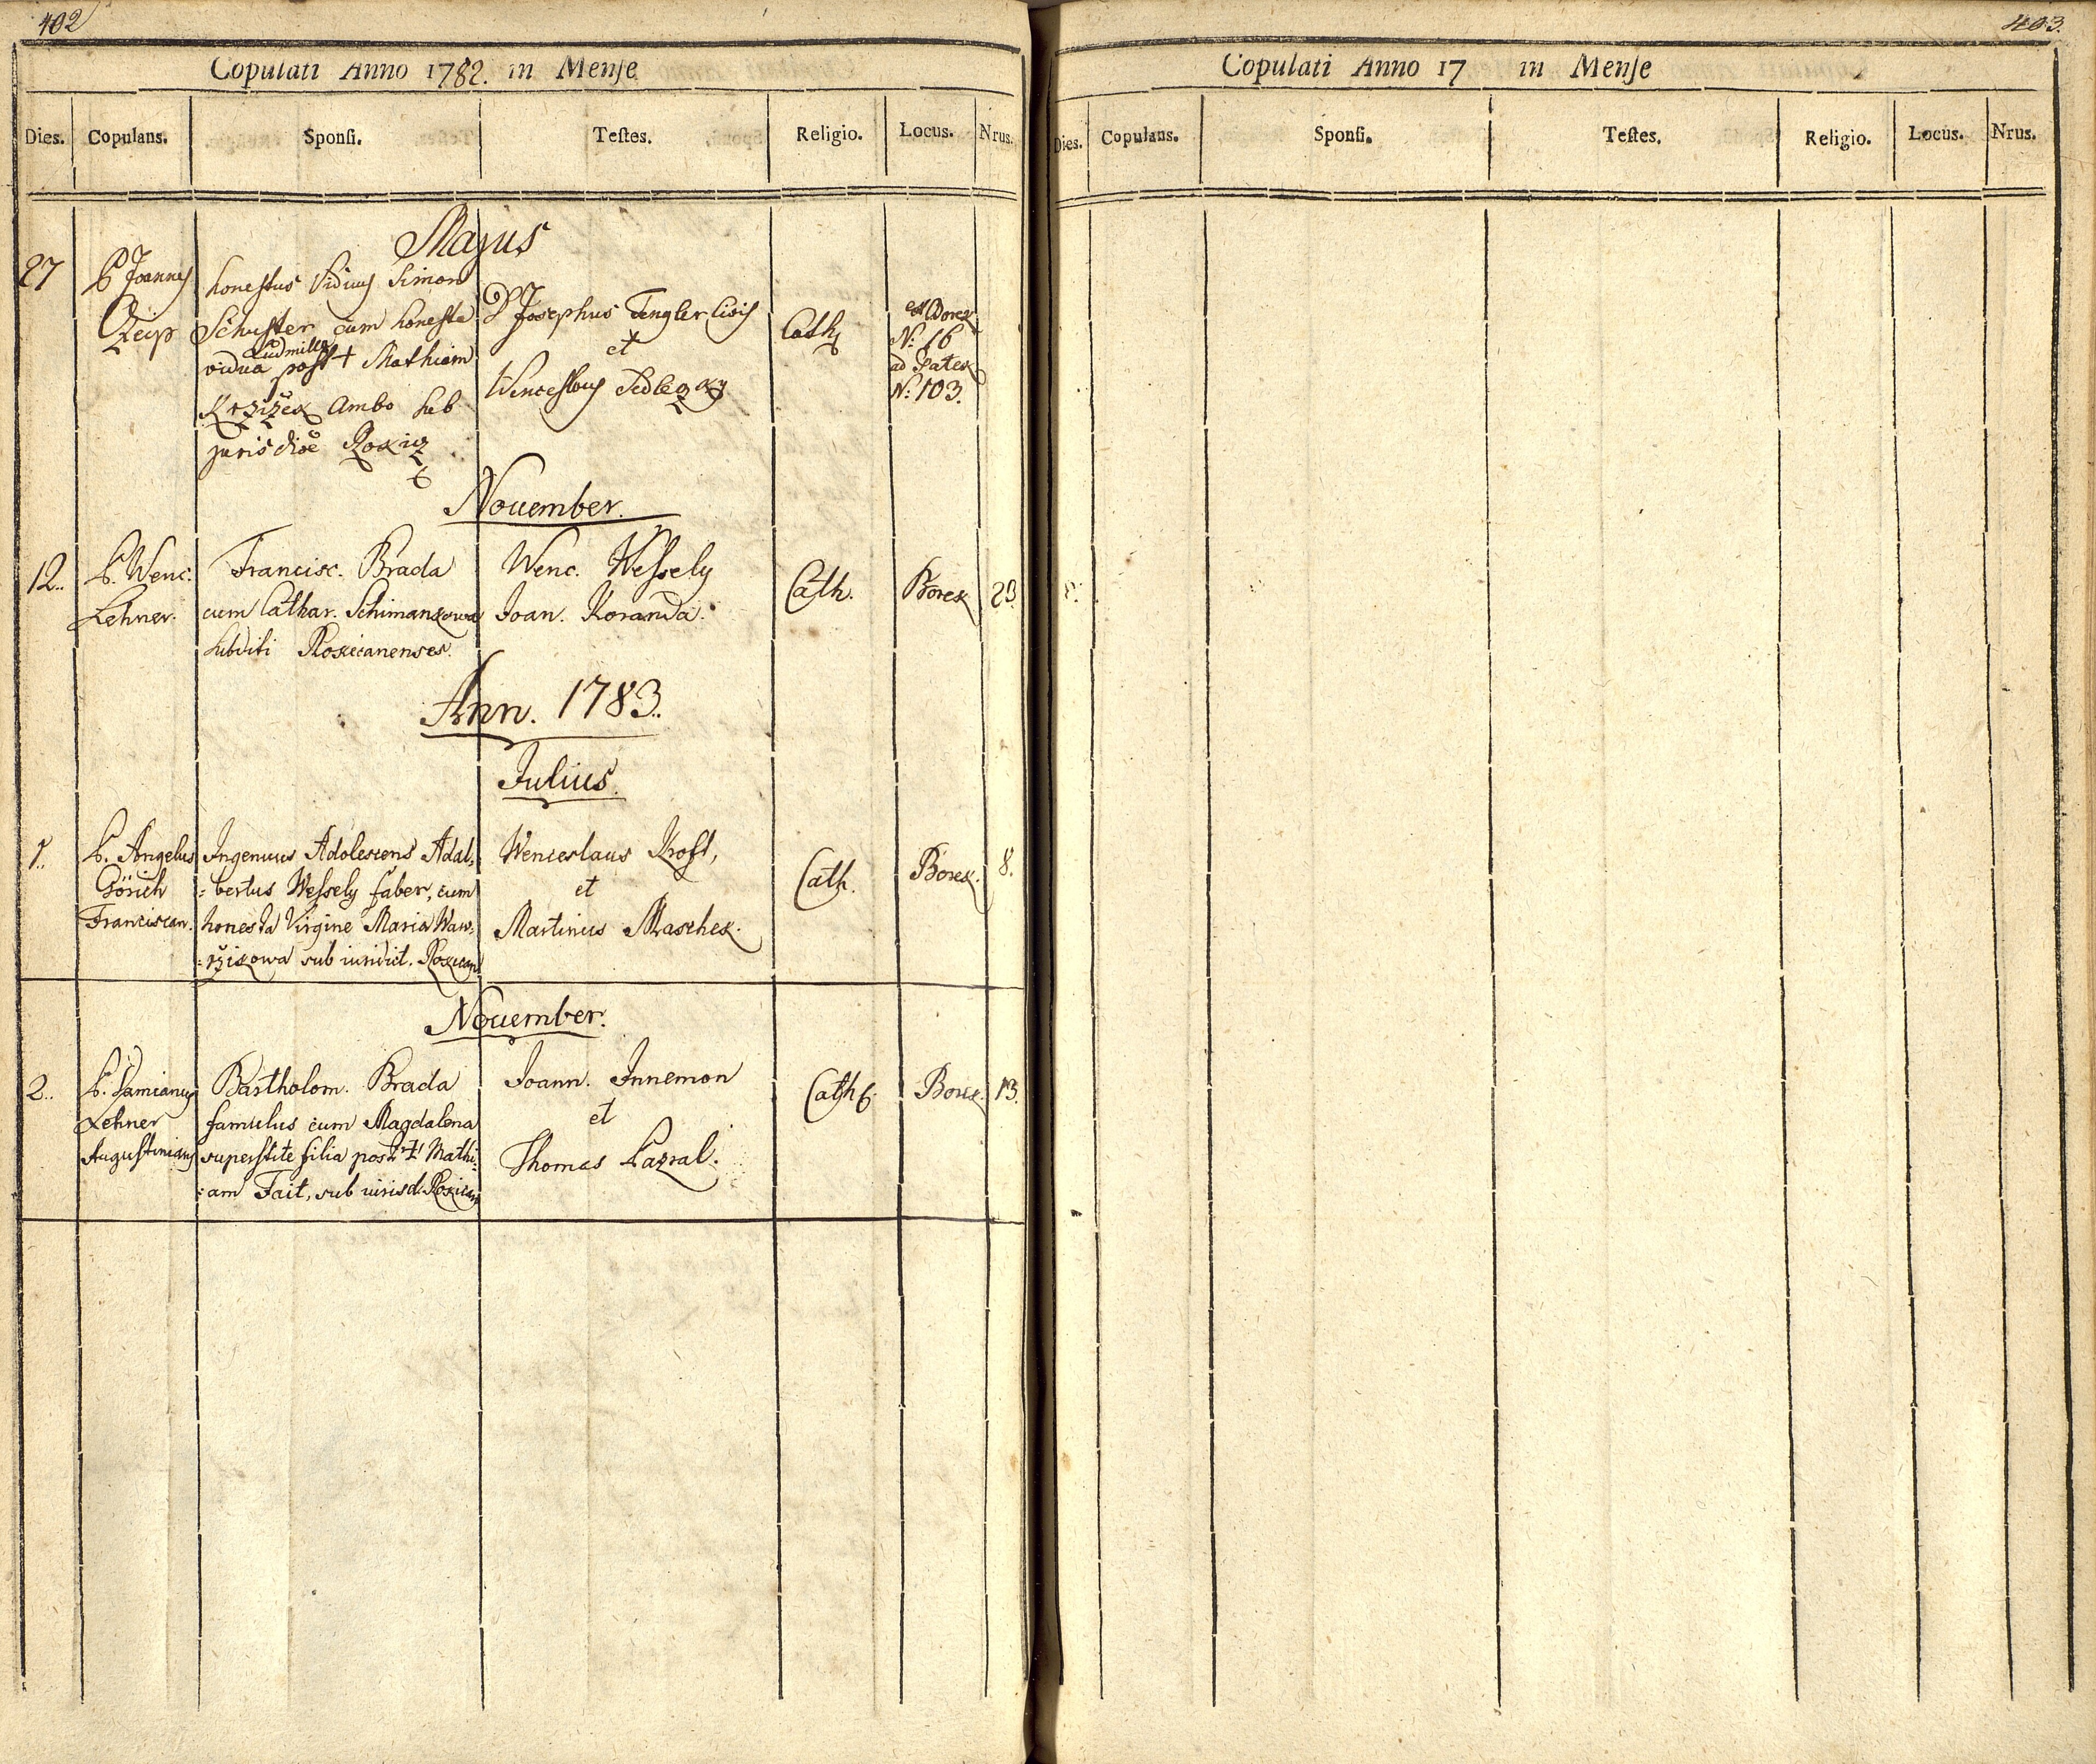 402
Copulati Anno 1782. in Mense
Dies. Copulans. Sponsi. Testes. Religio. Locus. Nrus.
Majus
27
P Joannes
honestus Viduus Simon
Schuster cum honesta
Ludmilla
vidua post + Mathiam
Krzižek Ambo sub
jurisdice
P Josephus Tengler Civis
et
Wenceslaus
Cath
N: 16
ad
N: 103.
November.
12..
P. Wenc.
Lehner.
Francisc. Brada
cum Cathar. Schimankowa
subditi Rokicanenses.
Wenc. Wessely
Joan. Koranda.
Cath.
Borek
23.
Ann. 1783.
Julius.
1..
P. Angelus
Görich
Franciscan.
Ingenuus Adolescens Adal,
bertus Wessely faber, cum
honesta Virgine Maria Waw,
ržikowa sub iurisdict. Rokican
Wenceslaus Kroft,
et
Martinus Maschek.
Cath.
Borek.
8.
November.
2..
P. Damianus
Lehner
Augustinianus
Bartholom. Brada
famulus cum Magdalena
superstite filia post + Mathi,
am Fait, sub iurisd. Rokican
Joann. Innemon
et
Thomas Pazral.
Cath
Borek.
13.
403.
Copulati Anno 17 in Mense
Dies. Copulans. Sponsi. Testes. Religio. Locus. Nrus.